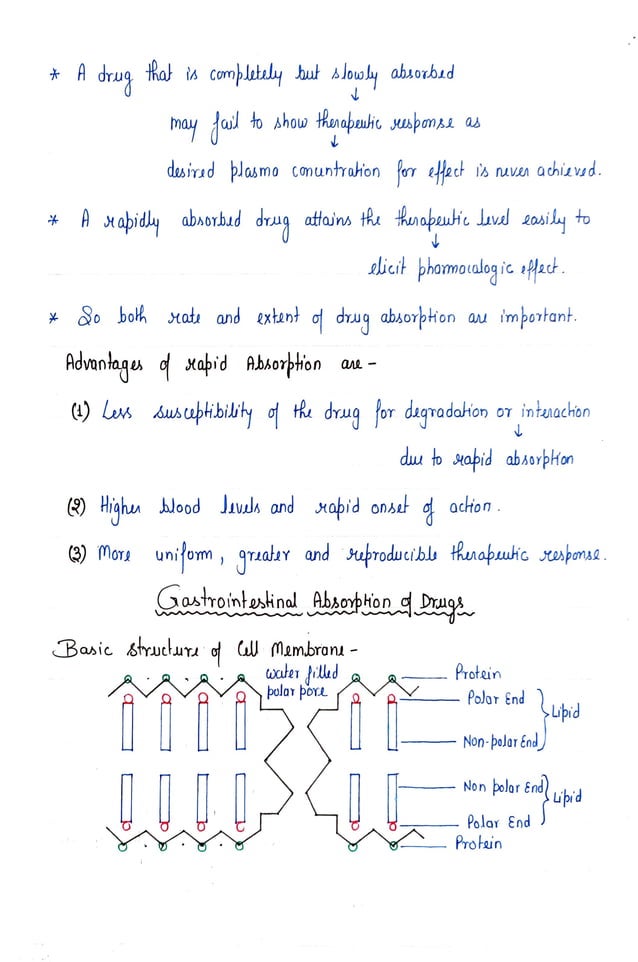 * A drug that is completely but slowly absorbed
↓
may fail to show therapeutic response as
↓
desired plasma concentration for effect is never achieved.
* A rapidly absorbed drug attains the therapeutic level easily to
↓
elicit pharmacologic effect.
* So both rate and extent of drug absorption are important.
Advantages of rapid Absorption are -
(1) Less susceptibility of the drug for degradation or interaction
↓
due to rapid absorption
(2) Higher blood levels and rapid onset of action.
(3) More uniform, greater and reproducible therapeutic response.
Gastrointestinal Absorption of Drugs
Basic Structure of Cell Membrane -
water filled
polar pore
Protein
Polar End
Non-polar End
Lipid
Non polar End
Polar End
Lipid
Protein